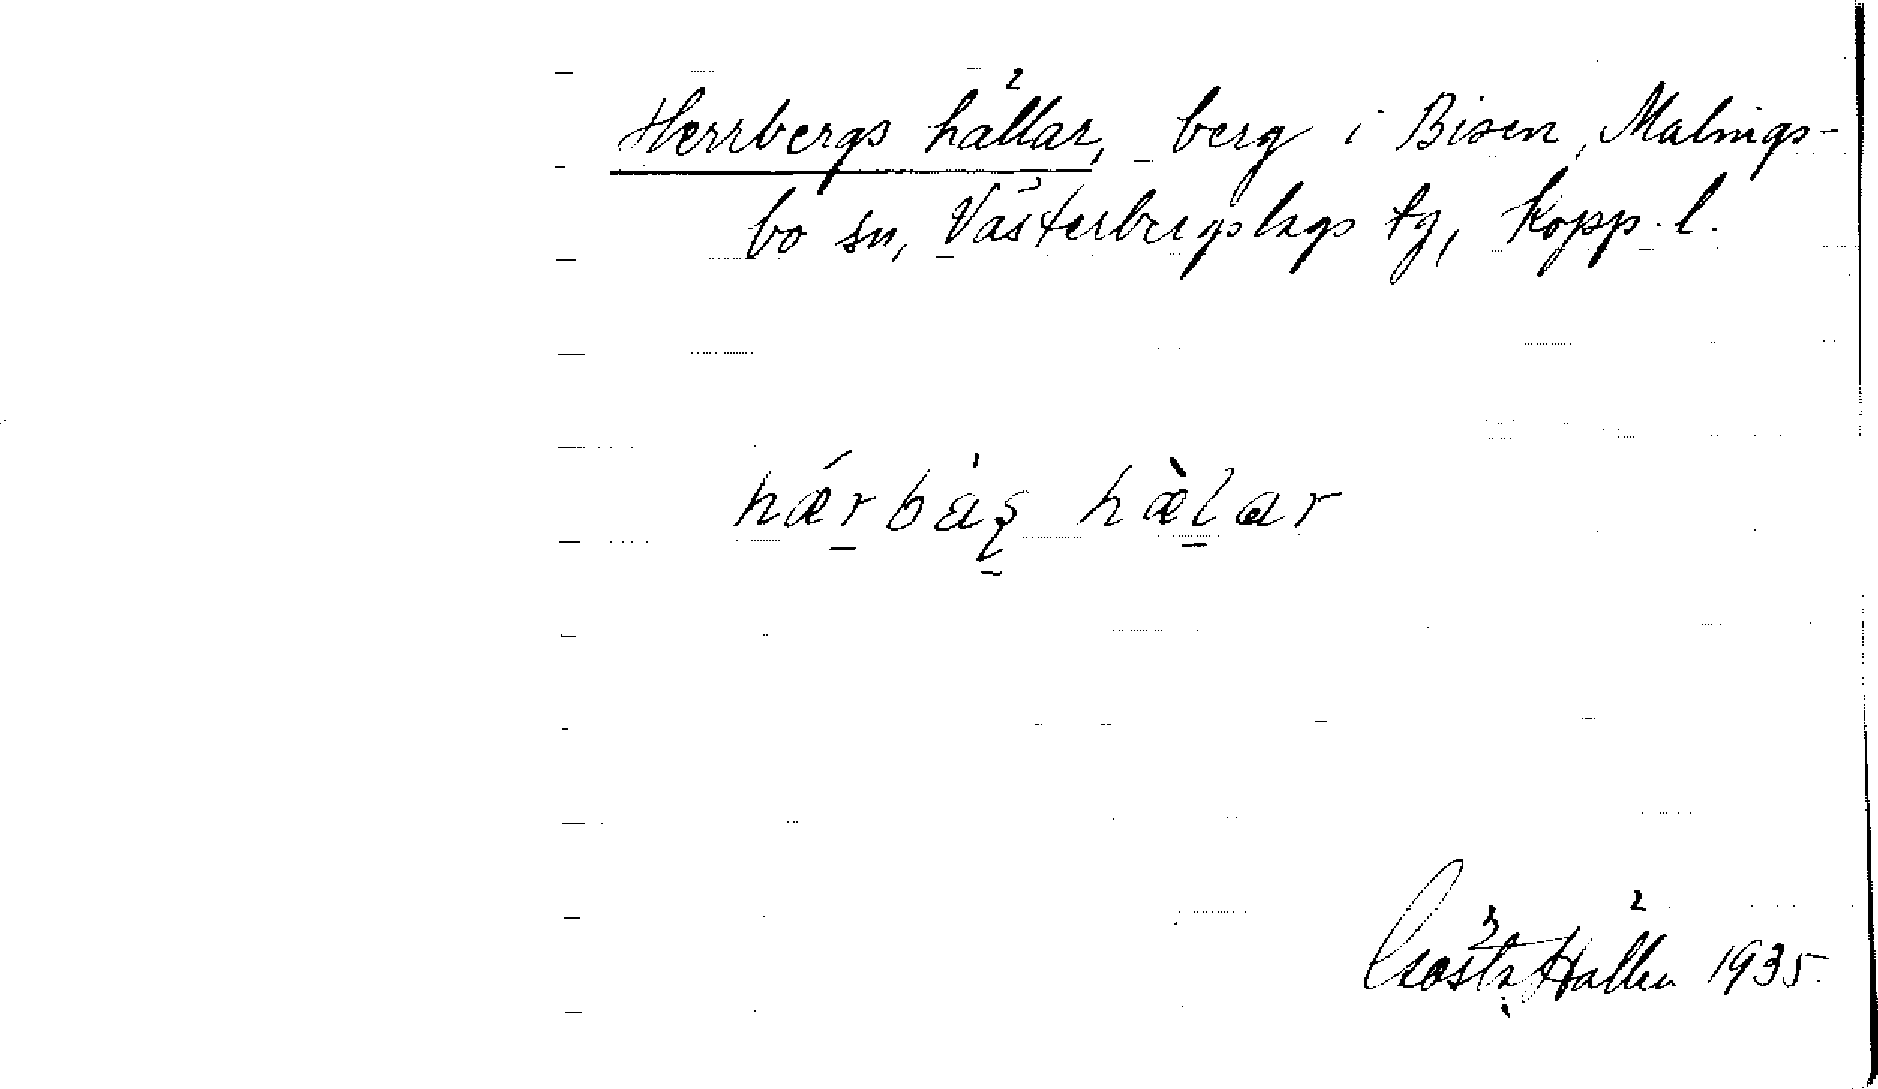 Herrbergs hällar, berg i Bisen, Malings-
bo sn, Västerbergslags tg, Kopp. l.
hǽr̲bàʂ hæ̀l̲ar
Gösta Hällen 1935.